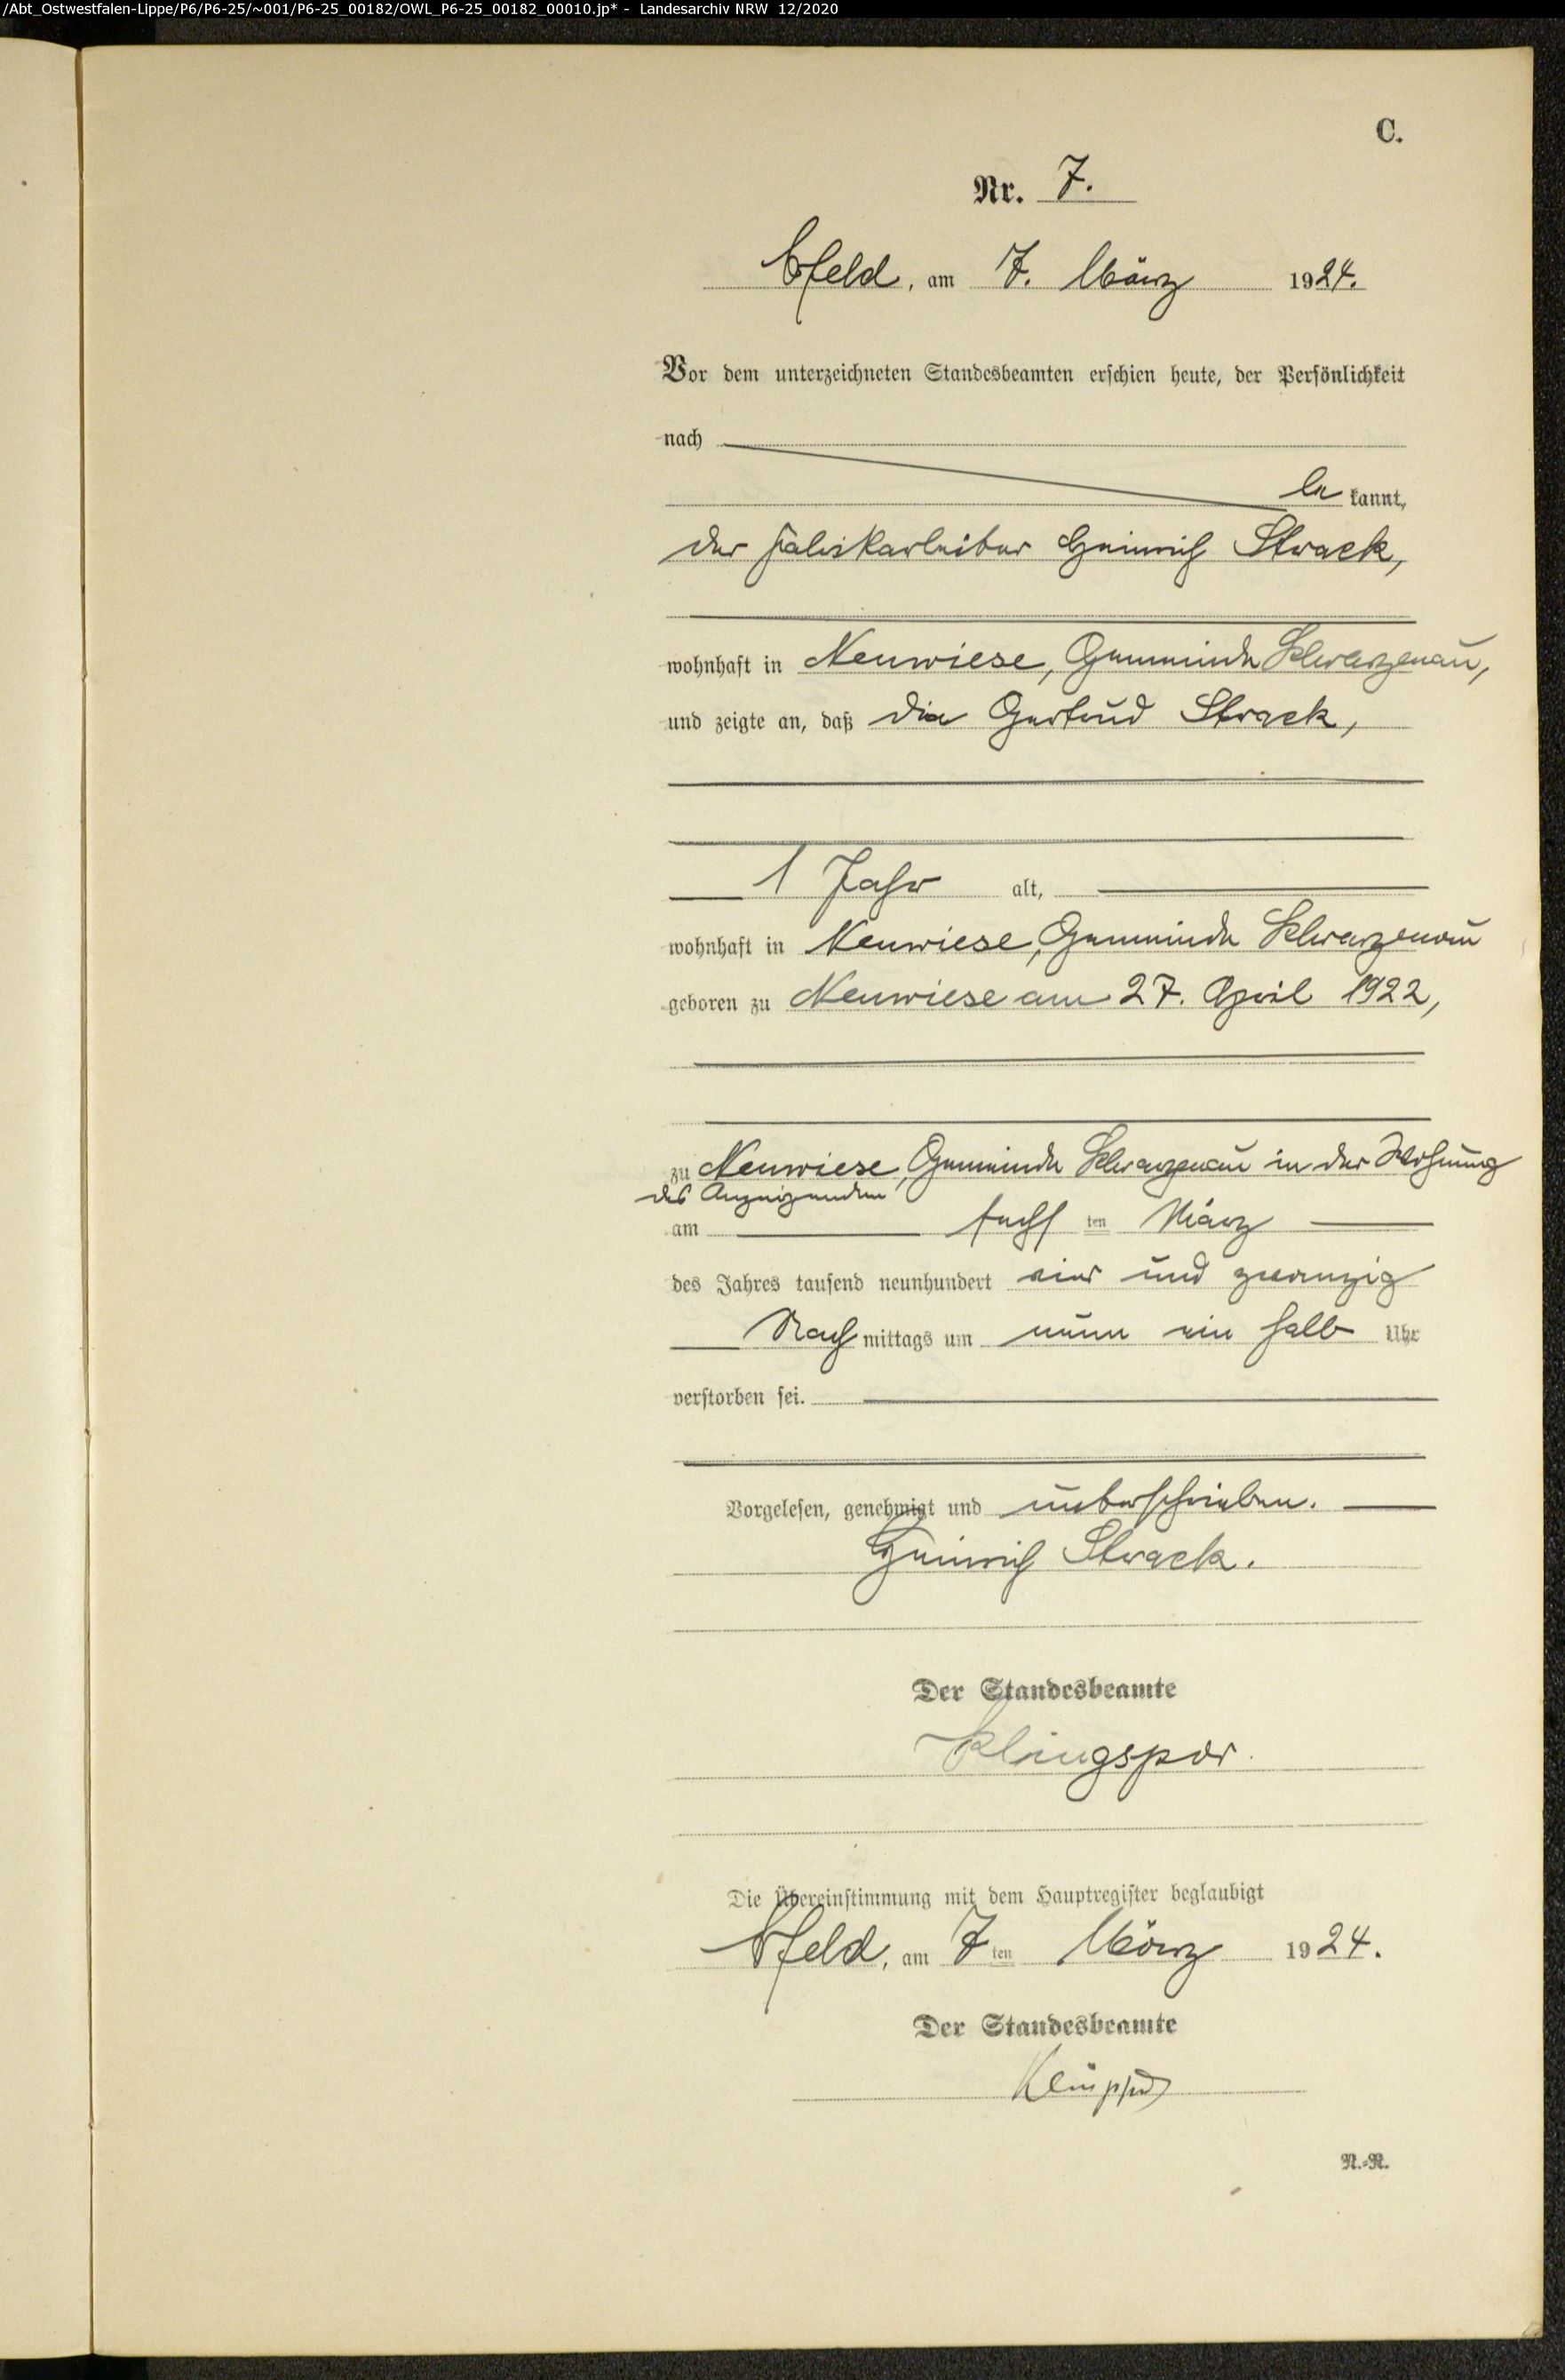 /Abt_Ostwestfalen-Lippe/P6/P6-25/~001/P6-25_00182/OWL_P6-25_00182_00010.jp* - Landesarchiv NRW 12/2020
C.
Nr. 7.
am 7. März 1924.
Vor dem unterzeichneten Standesbeamten erschien heute, der Persönlichkeit
nach
be kannt,
der Fabrikarbeiter Heinrich Strack,
wohnhaft in Neuwiese, Gemeinde Schwarzenau,
und zeigte an, daß die Gertrud Strack,
1 Jahr alt,
wohnhaft in Neuwiese, Gemeinde Schwarzenau
geboren zu Neuwiese am 27. April 1922,
zu Neuwiese, Gemeinde Schwarzenau in der Wohnung
des Anzeigenden
am sechs ten März
des Jahres tausend neunhundert vier und zwanzig
Nach mittags um neun ein halb Uhr
verstorben sei.
Vorgelesen, genehmigt und unterschrieben.
Heinrich Strack.
Der Standesbeamte
Klingspor.
Die Übereinstimmung mit dem Hauptregister beglaubigt
am 7 ten März 1924.
Der Standesbeamte
N.-R.